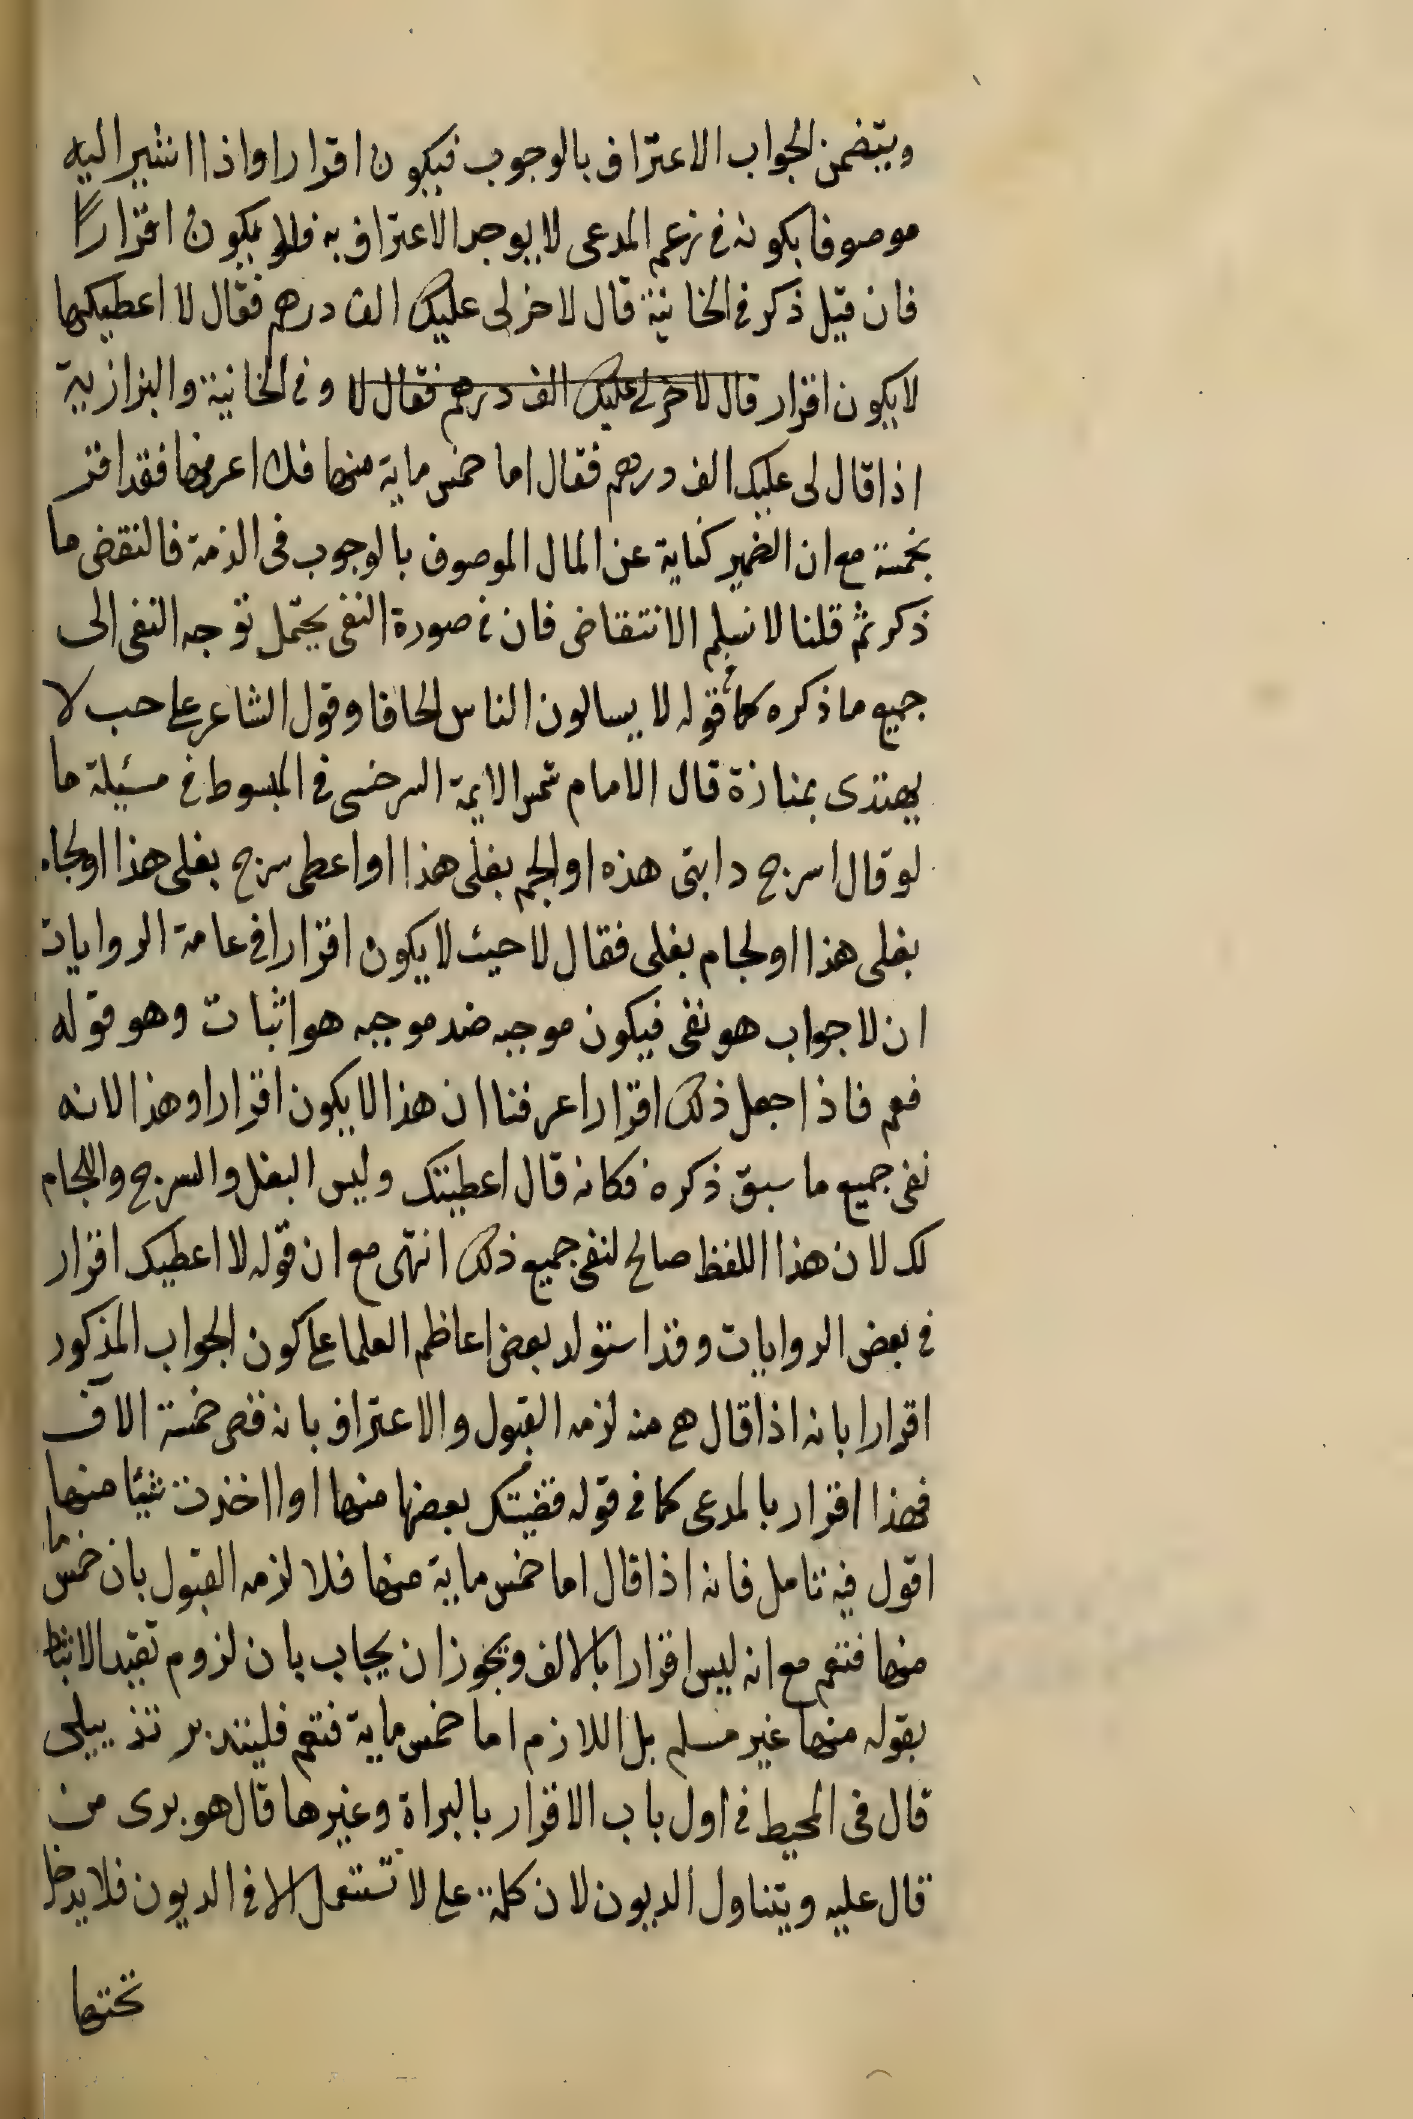 ويتضمن الجواب الاعتراف بالوجوب فيكون اقرارا واذا اشير اليه
موصوفا بكونه في زعم المدعى لا يوجد الاعتراف به فلا يكون اقرارا
فان قيل ذكر في الخانية قال لاخر لى عليك الف درهم فقال لا اعطيكها
لا يكون اقرار قال لاخر لى عليك الف درهم فقال لا وفي الخانية والبزازية
اذا قال لى عليك الف درهم فقال اما خمس ماية منها فلا اعرفها فقد اقر
بخمسة مع ان الضمير كناية عن المال الموصوف بالوجوب في الذمة فالنقض ما
ذكر ثم قلنا لا نسلم الانتقاض فان في صورة النفى يحتمل توجه النفى الى
جميع ما ذكره كما في قوله لا يسالون الناس الحافا وقول الشاعر على حب لا
يهتدى بمنازة قال الامام شمس الايمة السرخسى في المبسوط في مسئيلة ما
لو قال اسرج دابتى هذه او الجم بغلى هذا او اعطى سرج بغلى هذا او لجام
بغلى هذا او لجام بغلى فقال لا حيث لا يكون اقرارا في عامة الروايات
ان لا جواب هو نفى فيكون موجبه ضد موجبه هو اثبات وهو قوله
نعم فاذا جعل ذلك اقرارا عرفنا ان هذا لا يكون اقرارا وهذا لانه
نفى جميع ما سبق ذكره فكانه قال اعطيتك وليس البغل والسرج واللجام
لك لان هذا اللفظ صالح لنفى جميع ذلك انتهى مع ان قوله لا اعطيك اقرار
في بعض الروايات وقد استولد بعض اعاظم العلما على كون الجواب المذكور
اقرارا بانه اذا قال هي منه لزمه القبول والاعتراف بانه قضى خمسة الاف
فهذا اقرار بالمدعى كما في قوله قضيتك بعضها منها او اخذت شيئا منها
اقول فيه تامل فانه اذا قال اما خمس ماية منها فلا لزمه القبول بان خمس ما
منها فنعم مع انه ليس اقرارا بالالف ويجوز ان يجاب بان لزوم تقيد الاثبا
بقوله منها غير مسلم بل اللازم اما خمس ماية فنعم فليتدبر تذييلى
قال في المحيط في اول باب الاقرار بالبراة وغيرها قال هو برى من
قال عليه ويتناول الديون لان كلمة على لا تستعمل الا في الديون فلا يدخل
تحتها